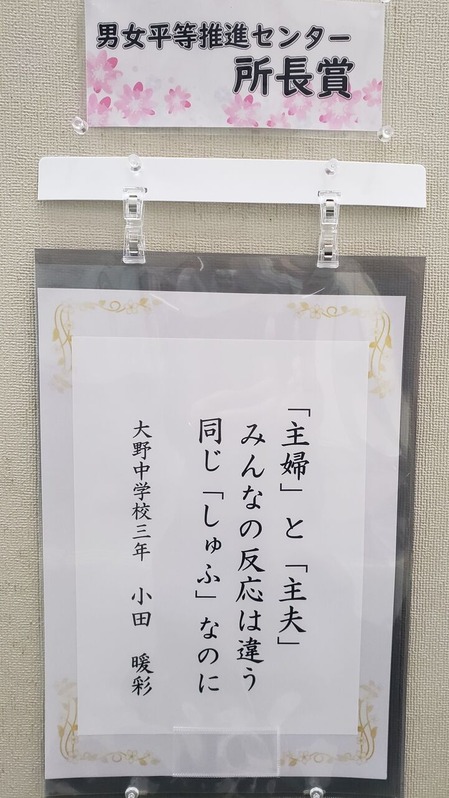 男女平等推進センター
所長賞
「主婦」と「主夫」
みんなの反応は違う
同じ「しゅふ」なのに
大野中学校三年 小田 暖彩